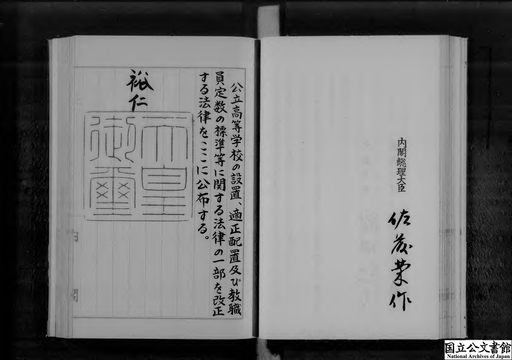 公立高等学校の設置、適正配置及び教職
員定数の標準等に関する法律の一部を改正
する法律をここに公布する。
裕仁
天皇
御璽
内閣総理大臣
佐藤榮作
国立公文書館
National Archives of Japan